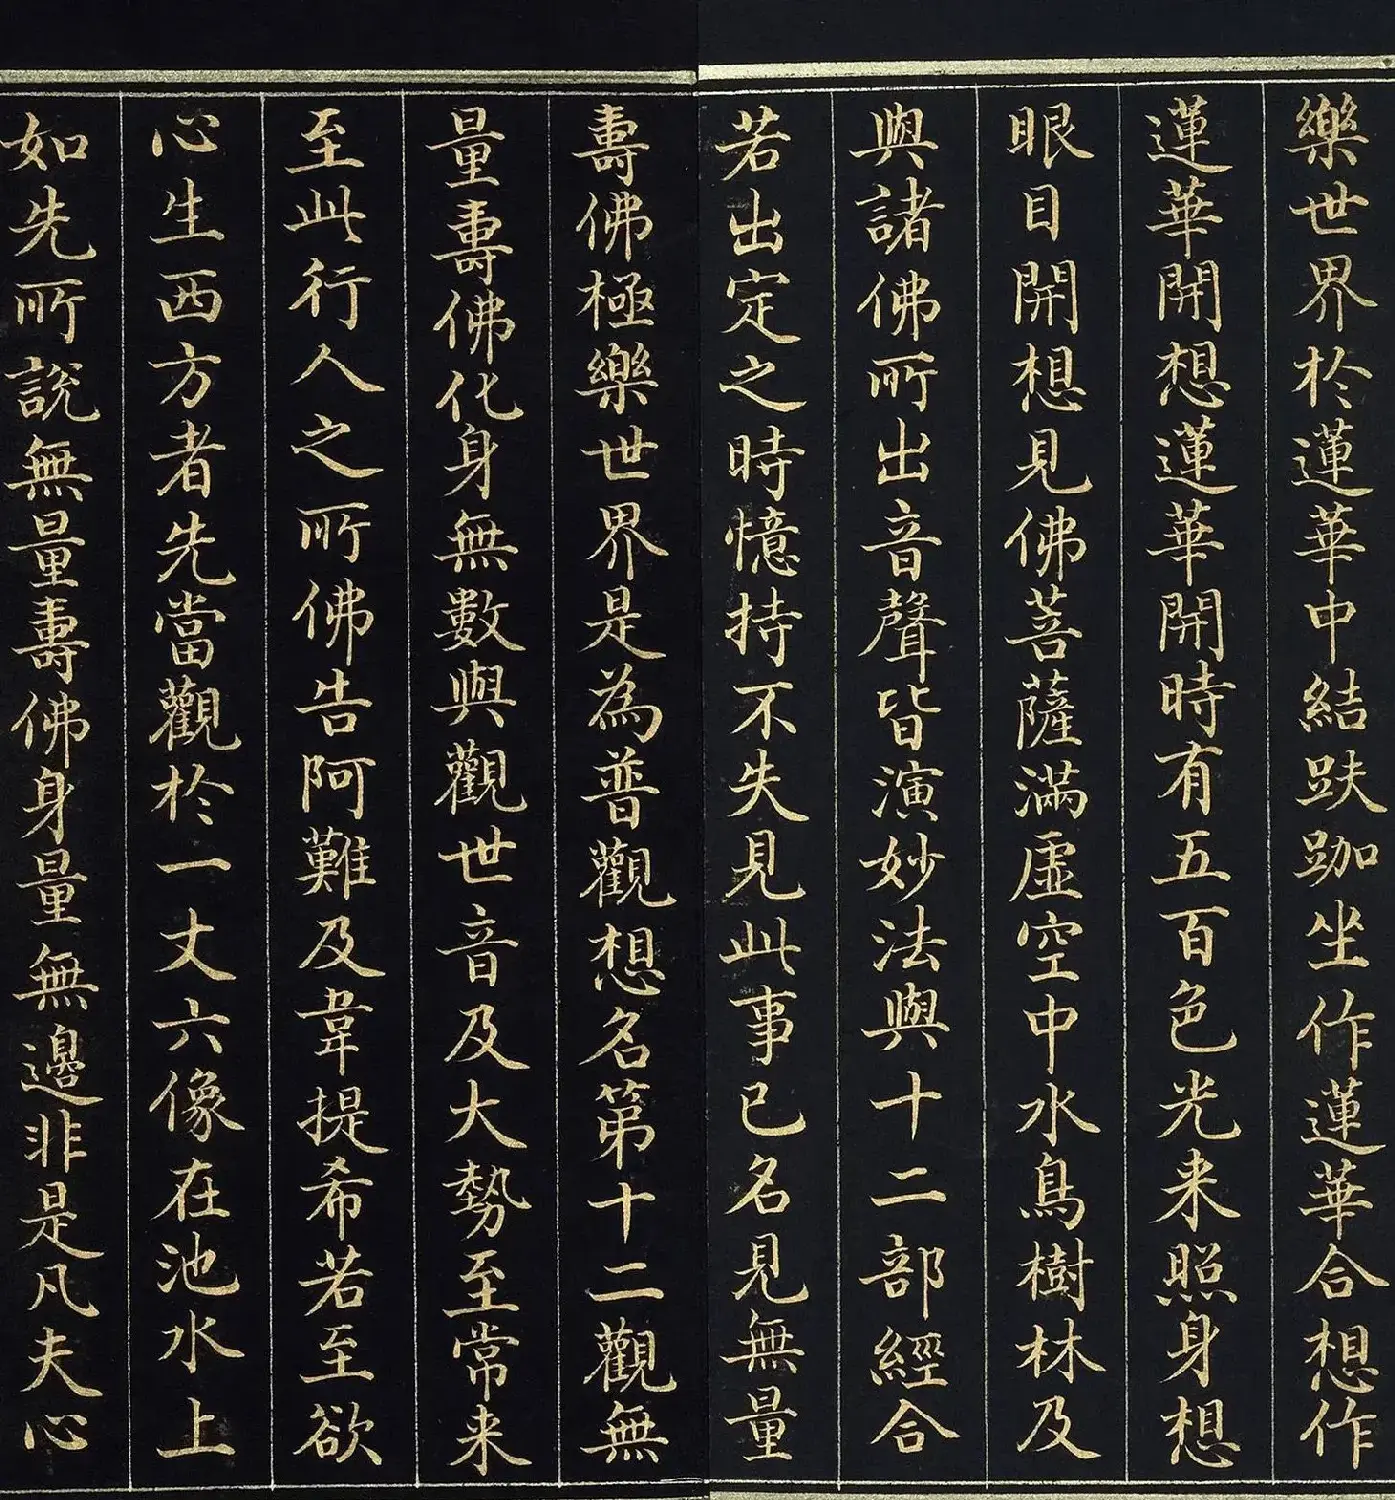 樂世界於蓮華中結趺跏坐作蓮華合想作
蓮華開想蓮華開時有五百色光来照身想
眼目開想見佛菩薩滿虛空中水鳥樹林及
與諸佛所出音聲皆演妙法與十二部經合
若出定之時憶持不失見此事已名見無量
壽佛極樂世界是為普觀想名第十二觀無
量壽佛化身無數與觀世音及大勢至常来
至此行人之所佛告阿難及韋提希若至欲
心生西方者先當觀於一丈六像在池水上
如先所說無量壽佛身量無邊非是凡夫心